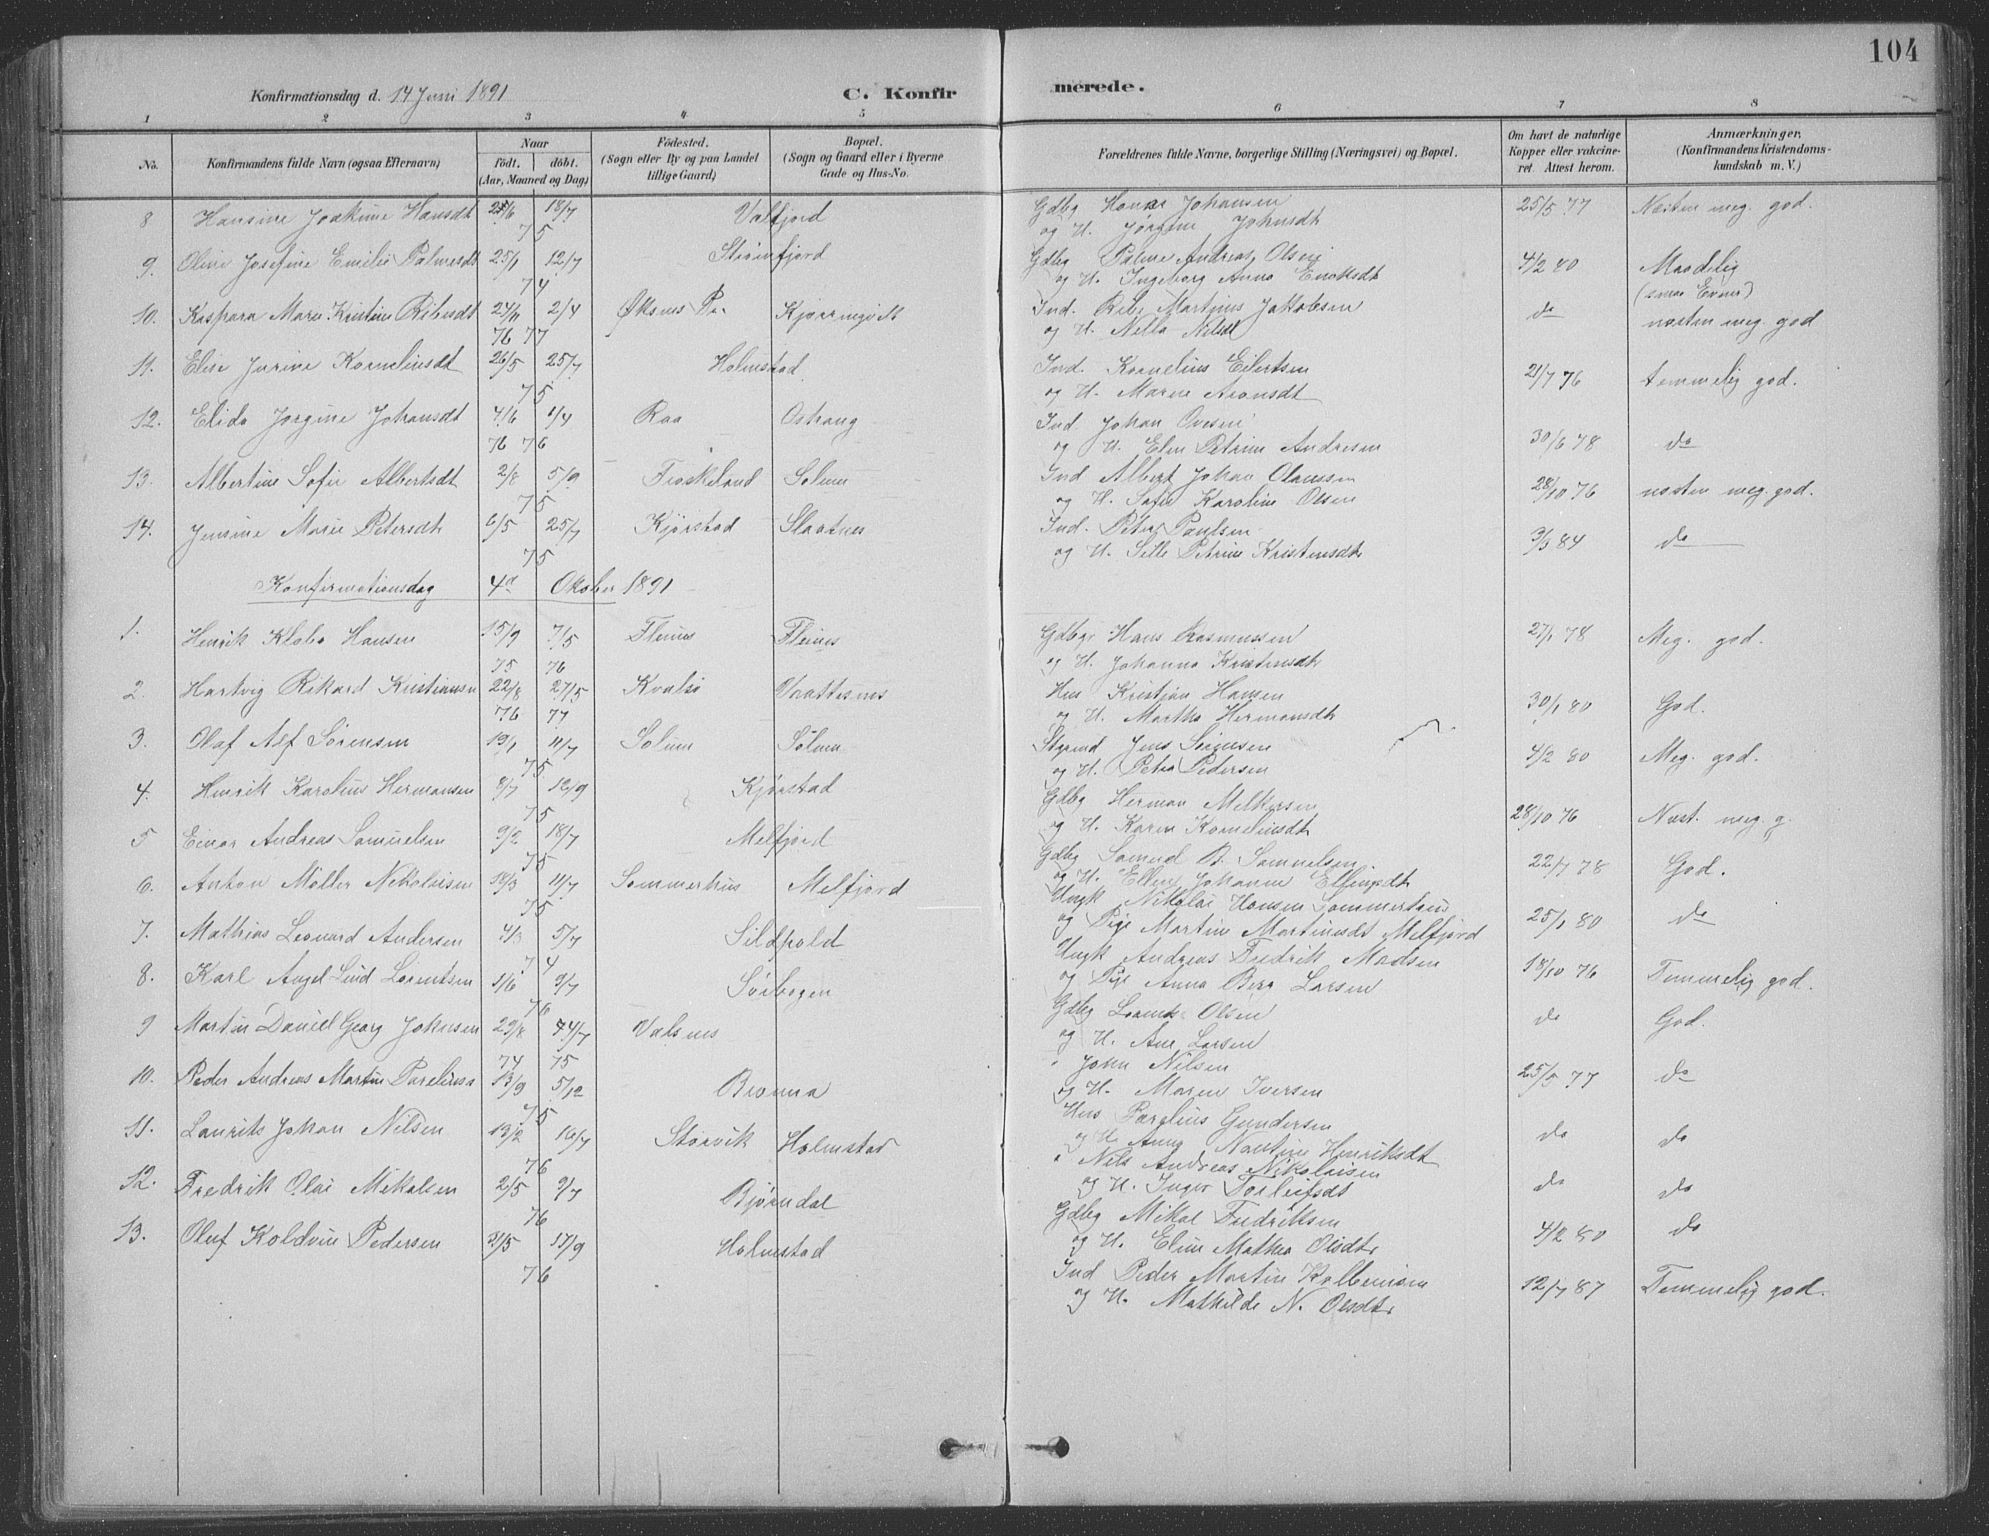 104
Konfirmationsdag d. 14 Juni 1891 C. Konfir merede.
1 2 3 4 5 6 7 8
No. Konfirmandens fulde Navn (ogsaa Efternavn) Naar født. døbt. (Aar, Maaned og Dag) Födested. (Sogn eller By og paa Landet tillige Gaard) Bopæl. (Sogn og Gaard eller i Byerne Gade og Hus-No. Forældrenes fulde Navne, borgerlige Stilling (Næringsvei) og Bopæl. Om havt de naturlige Kopper eller vakcineret. Attest herom. Anmærkninger, (Konfirmandens Kristendomskundskab m. V.)
8 Hansine Joakime Hansdt 25/6 18/7 75 Valfjord Gdbg Hans Johansen 25/5 77 Næsten meg. god.
og H. Jørgine Johnsdt
9. Oline Josefine Emilie Palmesdt 25/1 12/7 74 Steinfjord Gdbg Palme Andreas Olsen 4/2 80 Maadelig
og H. Ingeborg Anna Enoksdt (smaa Evner)
10. Kaspara Marie Kristine Ribesdt 24/11 2/4 76 77 Øksnes Kjørringvik Ind. Ribe Martinus Jakobsen do næsten meg. god
og H. Nella Nilsdt
11. Elise Jurine Kornelinsdt 26/5 25/7 75 Holmstad Ind. Kornelius Eilertsen 21/7 76 temmelig god.
og H. Maren Aronsdt
12. Elida Jørgine Johansdt 4/6 1/4 76 76 Raa Ind. Johan Ovesen 30/6 78 do
og H. Elen Petrine Andresen
13. Albertine Sofie Albertsdt 2/8 5/9 75 Froskeland Solum Ind Albert Johan Olaussen 28/10 76 næsten meg. god.
og H. Sofie Karoline Olsen
14. Jensine Marie Petersdt 6/5 25/7 75 Kjørstad Slaatnes Ind. Peter Paulsen 3/3 84 do
og H. Sille Petrine Kristensdt
Konfirmationsdag 4de Oktober 1891
1. Henrik Klabo Hansen 15/9 7/5 75 76 Fleines Fleines Gdbgr Hans Rasmussen 27/1 78 Meg. god.
og H. Johanna Kristensdt
2. Hartvig Rikard Kristiansen 22/8 27/5 76 77 Kvalsø Vaattesnes Hus Kristjan Hansen 30/1 80 God.
og H. Martha Hermansdt
3. Olaf Alf Sörensen 19/1 11/7 75 Solum Solum Styrmd Jens Sörensen 4/2 80 Meg. god.
og H. Petra Pedersen
4. Henrik Karolius Hermansen 8/7 12/9 75 Kjørstad Gdbg Herman Melkersen 28/10 76 Næst. meg. g.
og H. Karen Kornelinsdt
5 Einar Andreas Samuelsen 9/2 18/7 75 Melfjord Gdbg Samuel B. Samuelsen. 22/7 78 God.
og H. Ellen Johanna Ellingsdt
6. Anton Möller Nikolaisen 18/3 11/7 75 Sommerhus Melfjord Ungk Nikolai Hansen Sommerhus 25/1 80 do
og Pige Martine Martinusdt Melfjord
7. Mathias Leonard Andersen 4/3 5/7 74 Sildpold Ungk Andreas Fredrik Madsen 18/10 76 Temmelig god.
og Pige Anna Berg Larsen
8. Karl Angel Lind Lorentsen 1/6 9/7 76 Sörbogen Gdbg Lorents Olsen do God.
og H. Ane Larsen
9 Martin Daniel Georg Johnsen 29/8 74/7 74 75 Valsnes " John Nilsen 25/5 77 do
og H. Maren Iversen
10. Peder Andreas Martin Parelinsen 13/9 5/12 75 Bronna Hus Parelius Gundersen do do
og H. Anne Nautine Henriksdt
11. Laurits Johan Nilsen 13/2 16/7 76 Storvik Holmstad " Nils Andreas Nikolaisen do do
og H. Inger Torleifsdt
12. Fredrik Olai Mikalsen 2/5 9/7 76 Bjørndal Gdbg Mikal Fredriksen 4/2 80 do
og H. Eline Mathea Olsdtr
13. Oluf Koldvin Pedersen 31/5 17/9 76 Holmstad Ind Peder Martin Kolbeinsen 12/7 87 Temmelig god.
og H. Mathilde N. Olsdtr